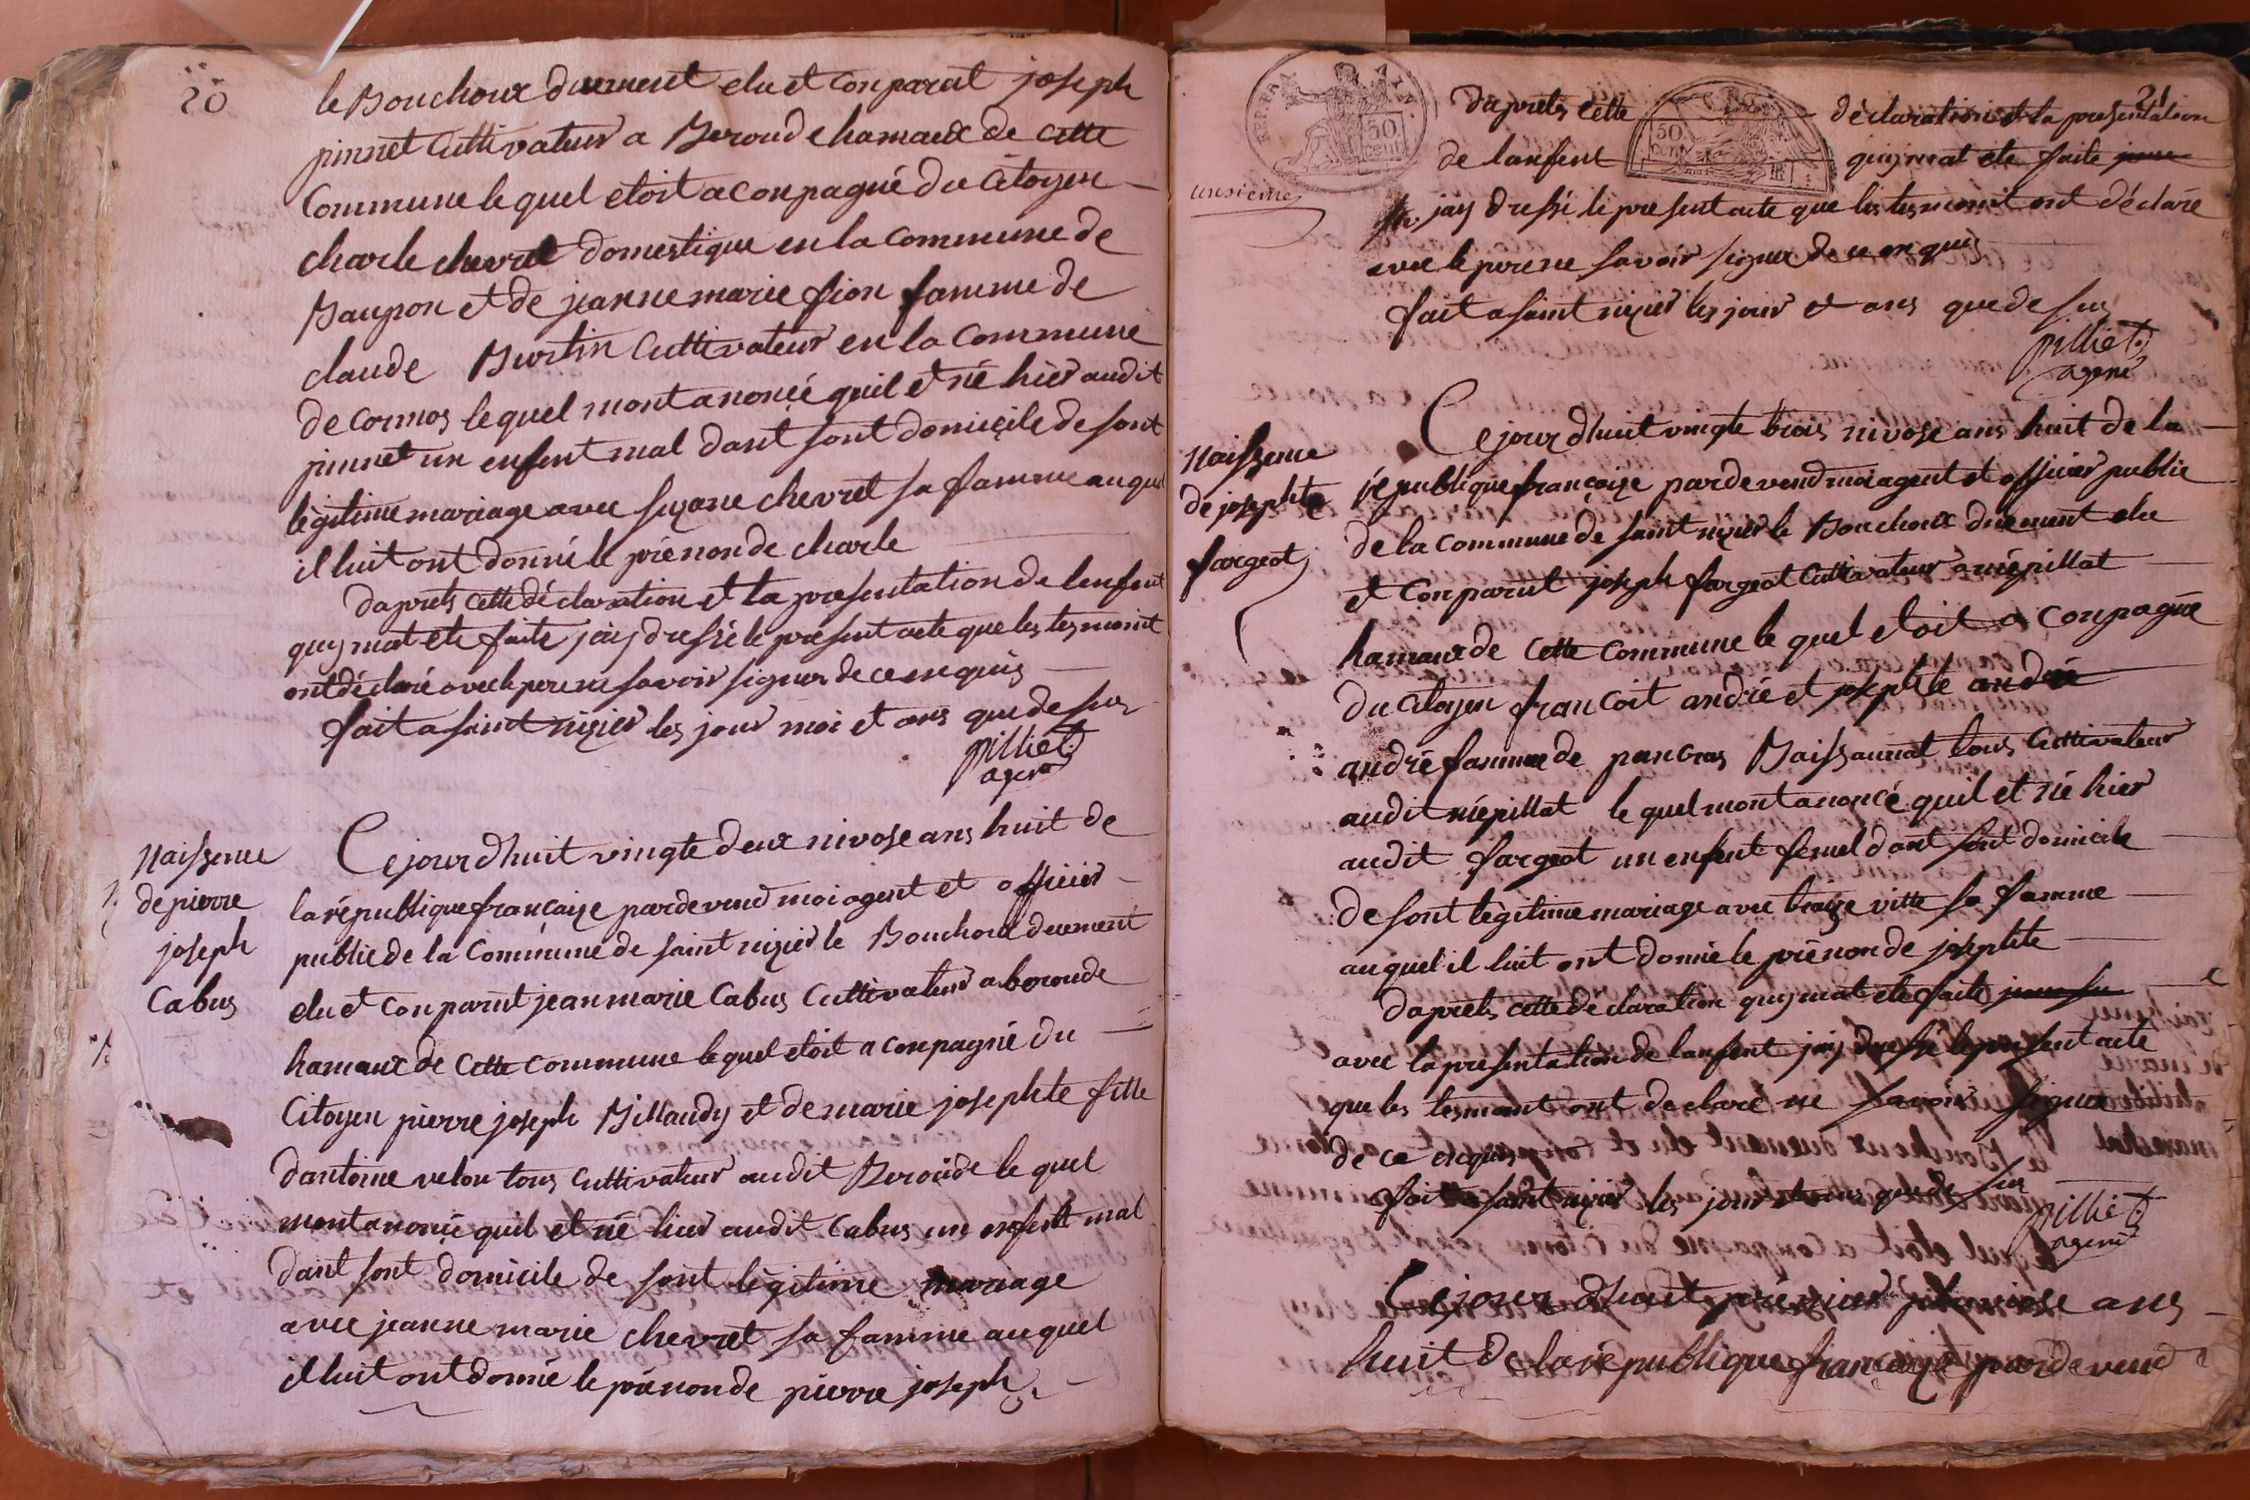 20
le Bouchoux duement elu et conparut joseph
pinnet Cultivateur a Beroude hamaux de cette
Commune le quel etoit aconpagné du Citoyen
charle chevret domestique en la commune de
Baupon et de jeanne marie fion famme de
claude Burtin Cultivateur en la commune
de cormos le quel mont anoncé quil et né hier audit
pinnet un enfent mal dant sont domicile de sont
légitime mariage avec suzane chevret sa famme au quel
il luit ont donné le prénon de charle
daprets cette déclaration et la presentation de lenfent
quymat ete faite jaiy dressé le present acte que les tesmoint
ont déclaré avec le pere ne savoir signer de ce enquis
fait a saint nizier les jour moi et ans que de sus
pilliet
agent
Naissence
de pierre
joseph
Cabus
Cejourdhuit vingte deux nivose ans huit de
la république françaize pardevend moi agent et officier
public de la Commune de saint nizier le Bouchoux duement
elu et conparut jean marie Cabus Cultivateur a boroude
hamaux de Cette commune lequel etoit aconpagné du
Citoyen pierre joseph Billaudy et de marie josephte fille
dantoine velon tous Cultivateur audit Beroude le quel
mont anoncé quil et né hier audit Cabus un enfent mal
dant sont domicile de sont légitime mariage
avec jeanne marie chevret sa famme au quel
il luit ont donné le prénon de pierre joseph
21
daprets cette déclaration et la presentation
de lanfent quymat ete faite
unsieme
jaiy dressé le present acte que les tesmoint ont déclaré
avec le pere ne savoir signer de ce enquis
fait a saint nizier les jour et ans que de sus
pilliet
agent
Naissence
de josephte
fargeot
Cejourdhuit vingte trois nivose ans huit de la
république françaize pardevend moi agent et officier public
de la commune de saint nizier le Bouchoux duement elu
et Conparut joseph fargeot Cultivateur a niépillat
hamaux de Cette Commune le quel etoit a conpagné
du citoyen francoit andré et josephte andré
andré famme de pancras Baissaunat tous Cultivateur
audit niépillat le quel mont anoncé quil et né hier
audit fargeot un enfent femel dant sont domicile
de sont légitime mariage avec braize vitte sa famme
au quel il luit ont donné le prénon de josephte
daprets cette déclaration quymat ete faite
avec la presentation de lanfent jaiy dressé le present acte
que les tesmoint ont declaré ne savoir signer
de ce enquis
fait a saint nizier les jour et ans que de sus
pilliet
agent
Cejourdhuit prémier pluviose ans
huit de la république françaize pardevend